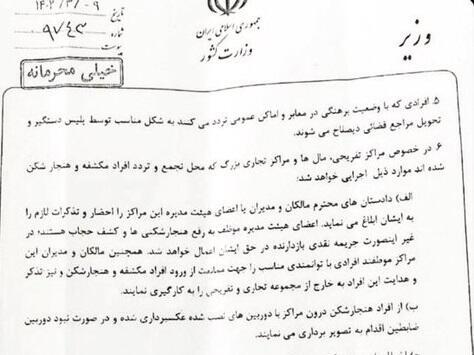 جمهوری اسلامی ایران
وزارت کشور
وزیر
تاریخ ۱۴۰۲/۳/۰۹
شماره ۹۷۴۳
پیوست
خیلی محرمانه
۵. افرادی که با وضعیت برهنگی در معابر و اماکن عمومی تردد می کنند به شکل مناسب توسط پلیس دستگیر و
تحویل مراجع قضائی ذیصلاح می شوند.
۶. در خصوص مراکز تفریحی، مال ها و مراکز تجاری بزرگ که محل تجمع و تردد افراد مکشفه و هنجار شکن
شده اند موارد ذیل اجرایی خواهد شد:
الف) دادستان های محترم مالکان و مدیران یا اعضای هیئت مدیره این مراکز را احضار و تذکرات لازم را
به ایشان ابلاغ می نماید. اعضای هیئت مدیره موظف به رفع هنجارشکنی ها و کشف حجاب هستند؛ در
غیر اینصورت جریمه نقدی بازدارنده در حق ایشان اعمال خواهد شد. همچنین مالکان و مدیران این
مراکز موظفند افرادی با توانمندی مناسب را جهت ممانعت از ورود افراد مکشفه و هنجارشکن و نیز تذکر
و هدایت این افراد به خارج از مجموعه تجاری و تفریحی را به کارگیری نمایند.
ب) از افراد هنجارشکن درون مراکز با دوربین های نصب شده عکسبرداری شده و در صورت نبود دوربین
ضابطین اقدام به تصویر برداری می نمایند.